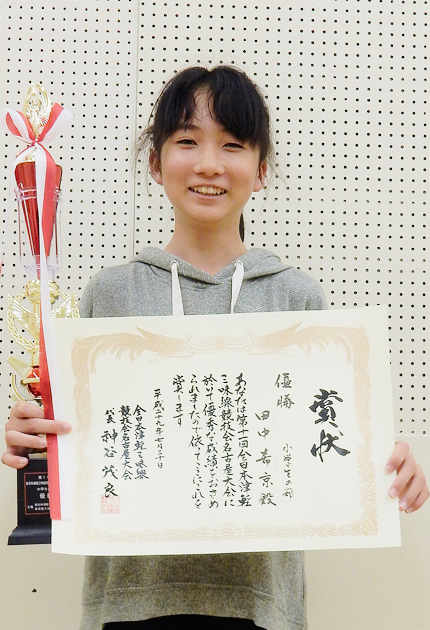 賞状
小学生の部
優勝 田中志京殿
あなたは第十一回全日本津軽
三味線競技会名古屋大会に
於いて優秀な成績をおさめ
られましたので依ってこれを
賞します
平成二十九年七月三十日
全日本津軽三味線
競技会名古屋大会
代表 神谷茂良
優